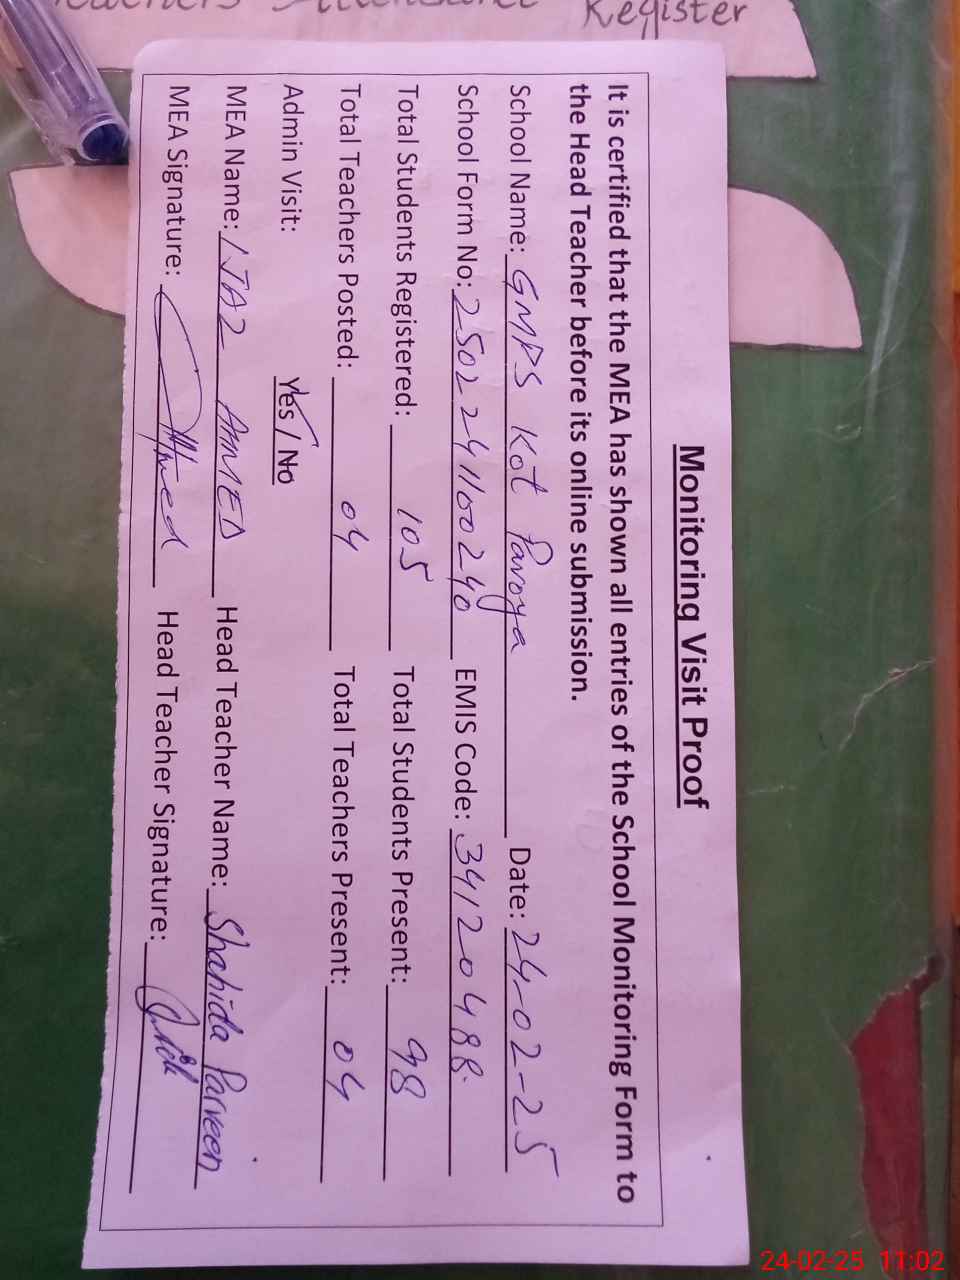 Teachers Attendance Register
Monitoring Visit Proof
It is certified that the MEA has shown all entries of the School Monitoring Form to
the Head Teacher before its online submission.
School Name: GMPS Kot Paroya Date: 24-02-25
School Form No: 2502241100240 EMIS Code: 34120488
Total Students Registered: 105 Total Students Present: 98
Total Teachers Posted: 04 Total Teachers Present: 04
Admin Visit: Yes / No
MEA Name: IJAZ AHMED Head Teacher Name: Shahida Parveen
MEA Signature: Ahmed Head Teacher Signature:
24-02-25 11:02